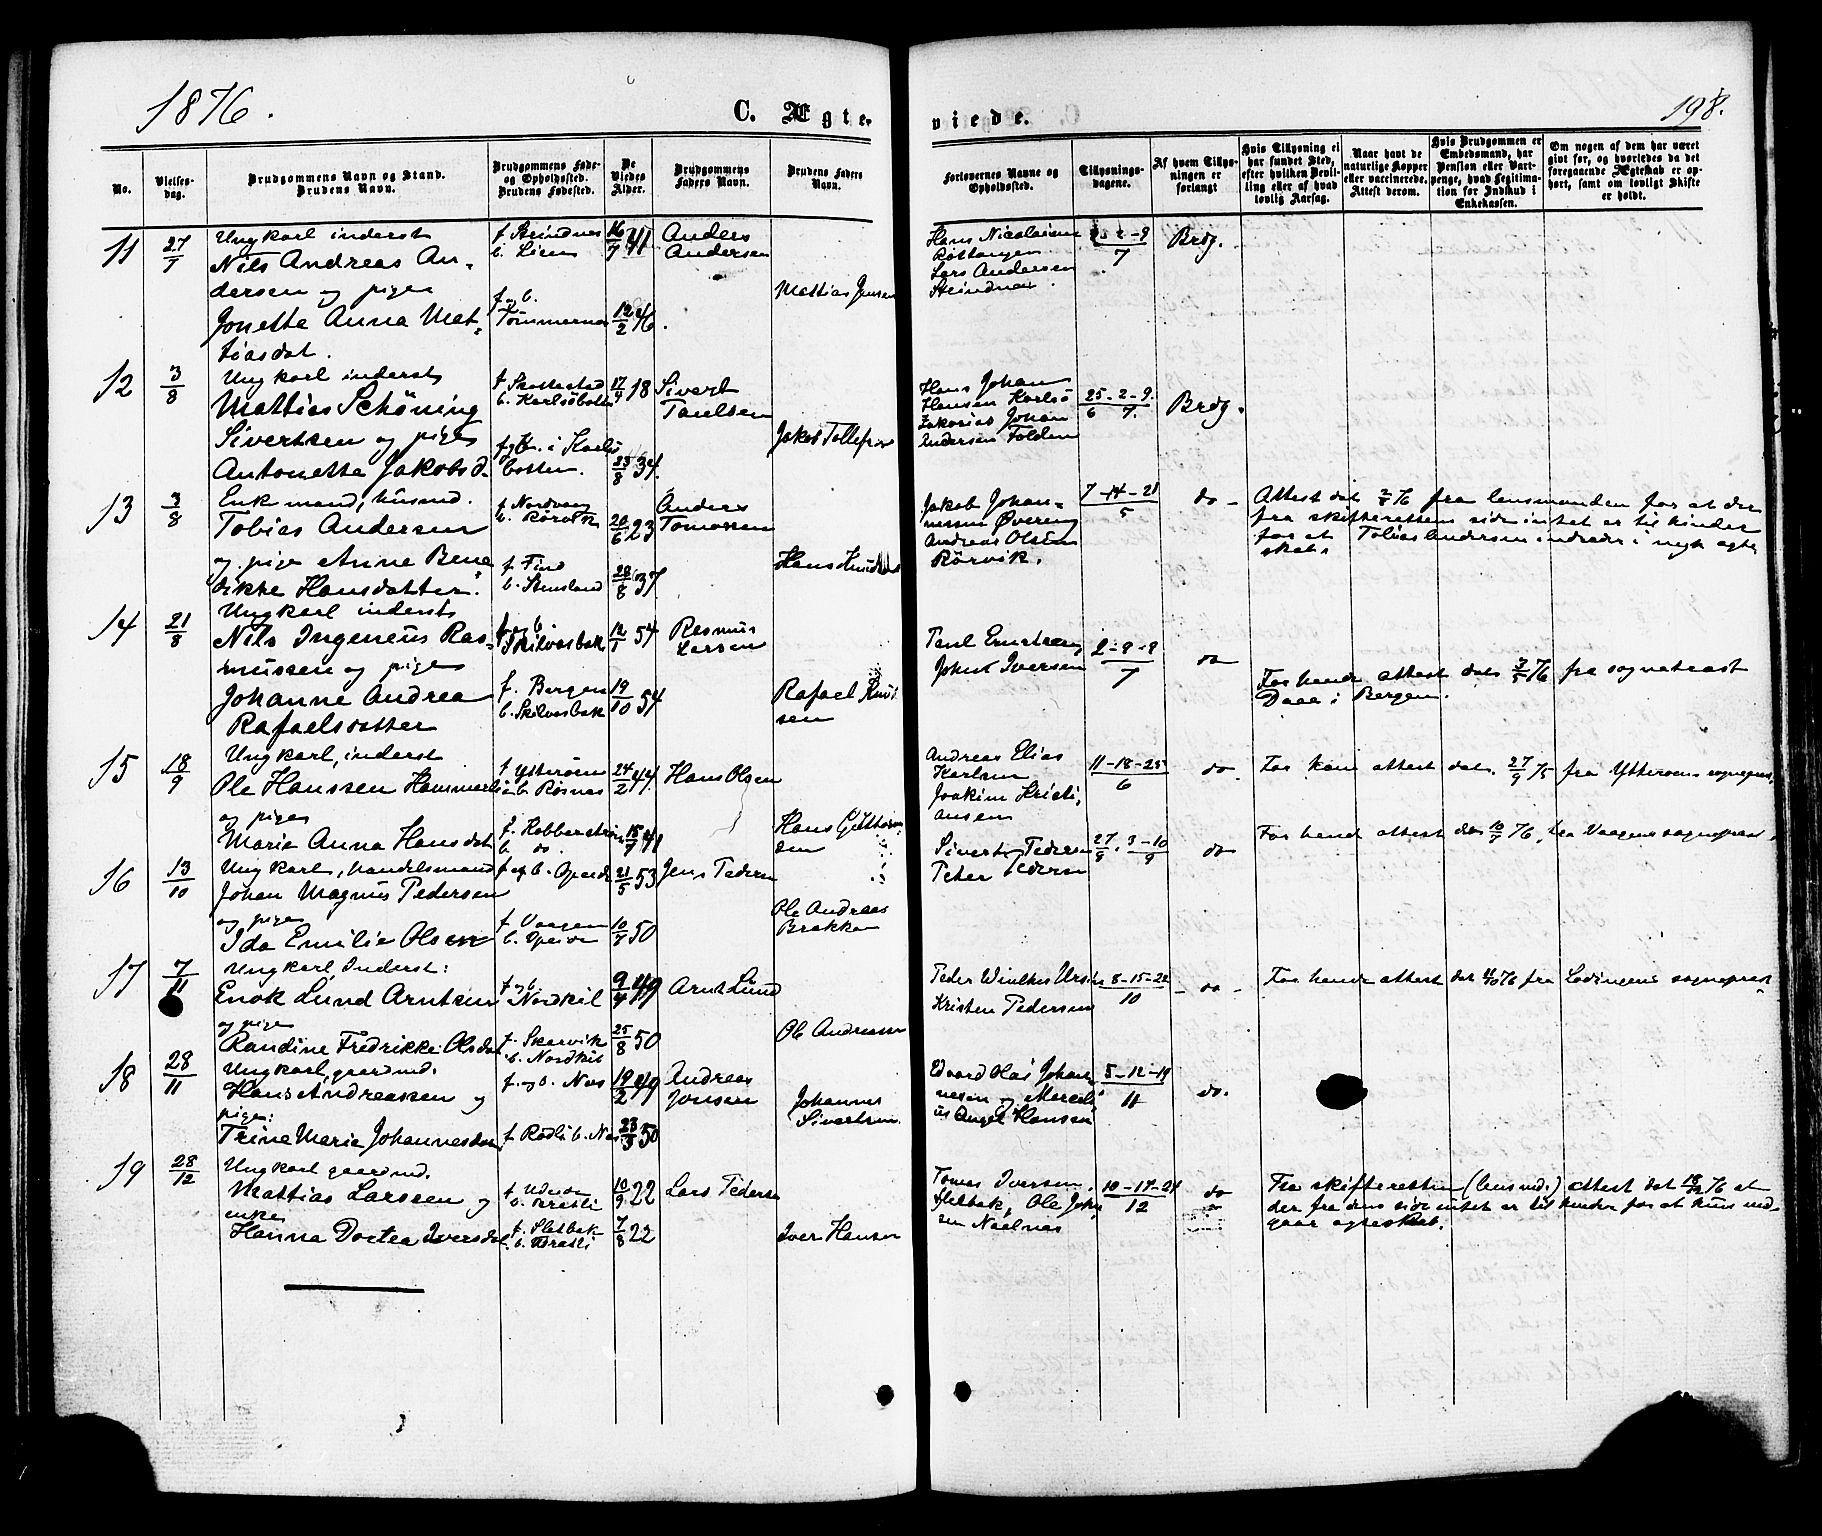 1876.
C. Ægte-
viede.
198.
No.
Vielses-
dag.
Brudgommens Navn og Stand.
Brudens Navn.
Brudgommens Føde-
og Opholdssted.
Brudens Fødested.
De
Viedes
Alder.
Brudgommens
Faders Navn.
Brudens Faders
Navn.
Forlovernes Navne og
Opholdssted.
Tillysnings-
dagene.
Af hvem Tillys-
ningen er
forlangt
Hvis Tillysning ei
har fundet Sted,
efter hvilken Bevil-
ling eller af hvad
lovlig Aarsag.
Naar havt de
naturlige Kopper
eller vaccinerede.
Attest derom.
Hvis Brudgommen er
Embedsmand, har
Pension eller Vart-
penge, hvad Legitima-
tion for Indskud i
Enkekassen.
Om nogen af dem har været
givt før, og hvorledes da det
foregaaende Ægteskab er op-
hørt, samt om lovligt Skifte
er holdt.
11 27/7 Ungkarl inderst
Nils Andreas An-
dersen og pige
Jonette Anna Mat-
tiasdat.
f. Steindnes
b. Lien
f og b.
Tømmernes
16/7 41
12/2 46
Anders
Andersen
Mattias Jensen
Hans Nicolaisen
Røttangen
Lars Andersen
Steindnes.
2-9
7
Brdg.
12 3/8 Ungkarl inderst
Mattias Schöning
Sivertsen og pige
Antonette Jakobsd.
f. Skottestad
b. Karlsøbotn
f og b. i Karls
botten.
17/4 18
23/8 34.
Sivert
Paulsen
Jakob Tollefsen
Hans Johan
Hansen Karlsø
Zakarias Johan
Andersen Folden
25-2-9.
6 7.
Brdg.
13 3/8 Enkemand, husmd.
Tobias Andersen
og pige Anne Bene
dikke Hansdatter.
b. Rørvik
f. Find
b. Stensland
20/6 23
28/8 37
Anders
Tomassen
Hans Knudsen
Jakob Johan-
nessen Øvereng
Andreas Olsen
Rørvik.
7-14-21
5
do-
Attest dat 2/8 76 fra lensmanden for at der
fra skifterettens side intet er til hinder
for at Tobias Andersen indtræder i nyt ægte
skab.
14 21/8 Ungkarl inderst
Nils Ingeneus Ras-
mussen og pige
Johanne Andrea
Rafaelsdatter
f og b.
Skilvasbak
f. Bergen
b. Skilvasbak
12/1 54
19/10 54
Rasmus
Larsen
Rafael Knut
sen
Paul Enertsen
Johnt Iversen
2-9-9
7
do
For hende attest dat 3/5 76 fra sogneprest
Daae i Bergen.
15 18/9 Ungkarl, inderst
Ole Hanssen Hammer
og pige
Marie Anna Hansdat
f. Ytterøen
b. Røsnes
b. do.
24/2 44.
15/7 41
Hans Olsen
Hans Guttorm
sen
Andreas Elias
Karlsen
Joakim Kristi,
ansen
11-18-25
6
do
For ham attest dat. 27/9 75 fra Ytterøens sognepr.
For hende attest dat 10/7 76, fra Vaagens sogneprest.
16 13/10 Ungkarl, handelsmand
Johan Magnus Pedersen
og pige
Ida Emilie Olsen
f og b. Opeide
f. Vaagen
b. Opeide
21/5 53
10/7 50
Jens Pedersen
Ole Andreas
Brekken
Sivert Pedersen
Peter Pedersen
27/8, 3-10/9
do
17 7/11 Ungkarl, Inderst:
Enok Lund Arntsen
og pige
Randine Fredrikke Olsdat
f og b.
Nordkil
f. Skarvik
b. Nordkil
9/4 49
25/8 50
Arnt Lund
Ole Andreassen
Peder Winther Ursin
Kristen Pedersen
8-15-22
10
- do -
For hende attest dat 4/10 76 fra Lødingens sogneprest
18 28/11 Ungkarl, gaardmd:
Hans Andreassen og
pige:
Trine Marie Johannesdat
f. og b. Nes
f. Rødli b. Nes
19/2 49
23/3 50
Andreas
Jonsen
Johannes
Sivertsen
Edvard Olai Johan
nesen og Marceli
us Angel Hansen
5-12-19
11
do.
19 28/12 Ungkarl gaardmd.
Mattias Larssen og
enke
Hanna Dortea Iversdat
f. Sletbak
10/9 22
7/8 22
Lars Pedersen
Iver Hansen
Tomas Iversen,
Sletbak, Ole John
sen Naelnes
10-17-24
12
do
Fra skifteretten (lensmd.) attest dat 18/12 76 at
der fra dens side intet er til hinder for at hun ind-
gaar ægteskab.